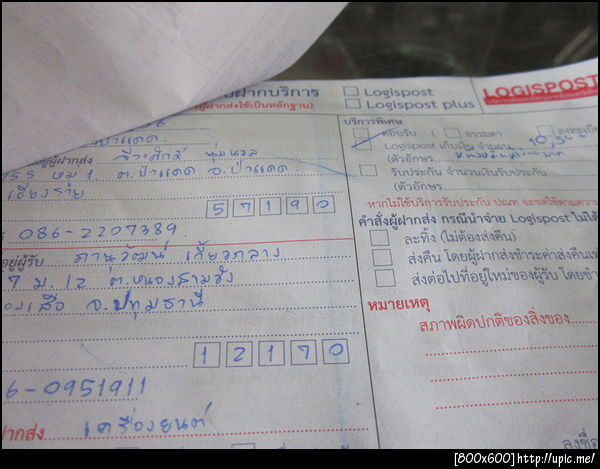 ฝากบริการ
(ผู้ฝากส่งใช้เป็นหลักฐาน)
Logispost
Logispost plus
LOGISPOST
ป่าแดด.
อยู่ผู้ฝากส่ง
155 หมู่ 1 ต.ป่าแดด อ.ป่าแดด
เชียงราย
57190
086-2207389.
อยู่ผู้รับ ภานุวัฒน์ เกี้ยวกลาง
7 ม.12 ต.หนองสามวัง
องเสือ จ.ปทุมธานี
12170
6-0951911
ฝากส่ง เครื่องยนต์
บริการพิเศษ
ตอบรับ ( ธรรมดา ลงทะเบีย
Logispost เก็บเงิน จำนวน
(ตัวอักษร
รับประกัน จำนวนเงินรับประกัน
(ตัวอักษร
หากไม่ใช้บริการรับประกัน ปณท จะชดใช้ตามความ
คำสั่งผู้ฝากส่ง กรณีนำจ่าย Logispost ไม่ได้
ละทิ้ง (ไม่ต้องส่งคืน)
ส่งคืน โดยผู้ฝากส่งชำระค่าส่งคืนเท
ส่งต่อไปที่อยู่ใหม่ของผู้รับ โดยชำ
หมายเหตุ
สภาพผิดปกติของสิ่งของ
ลงชื่อ
[800x600]http://upic.me/